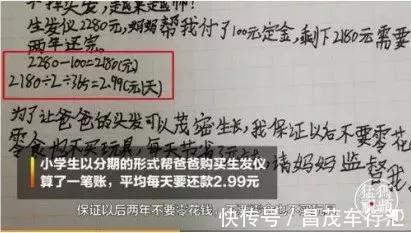 不掉头发,越来越帅!
生发仪2280元,妈妈帮我付了100元定金,剩下2180元需要
两年还完。
2280-100=2180(元)
2180÷2÷365=2.99(元/天)
为了让爸爸的头发可以茂密生长,我保证以后不要零花
零食
请妈妈监督
小学生以分期的形式帮爸爸购买生发仪
算了一笔账,平均每天要还款2.99元
保证以后两年不要零花钱
快传号/昌茂车仔汇